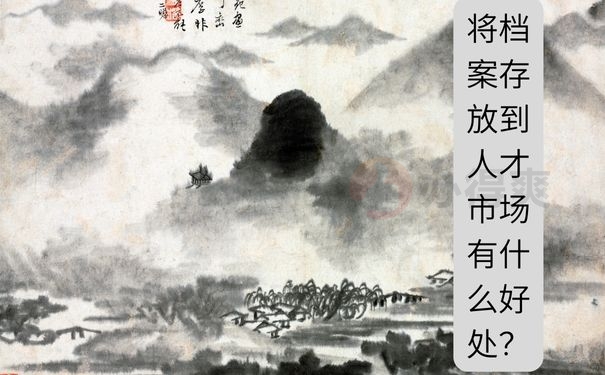 将档
案存
放到
人才
市场
有什
么好
处？
办得爽